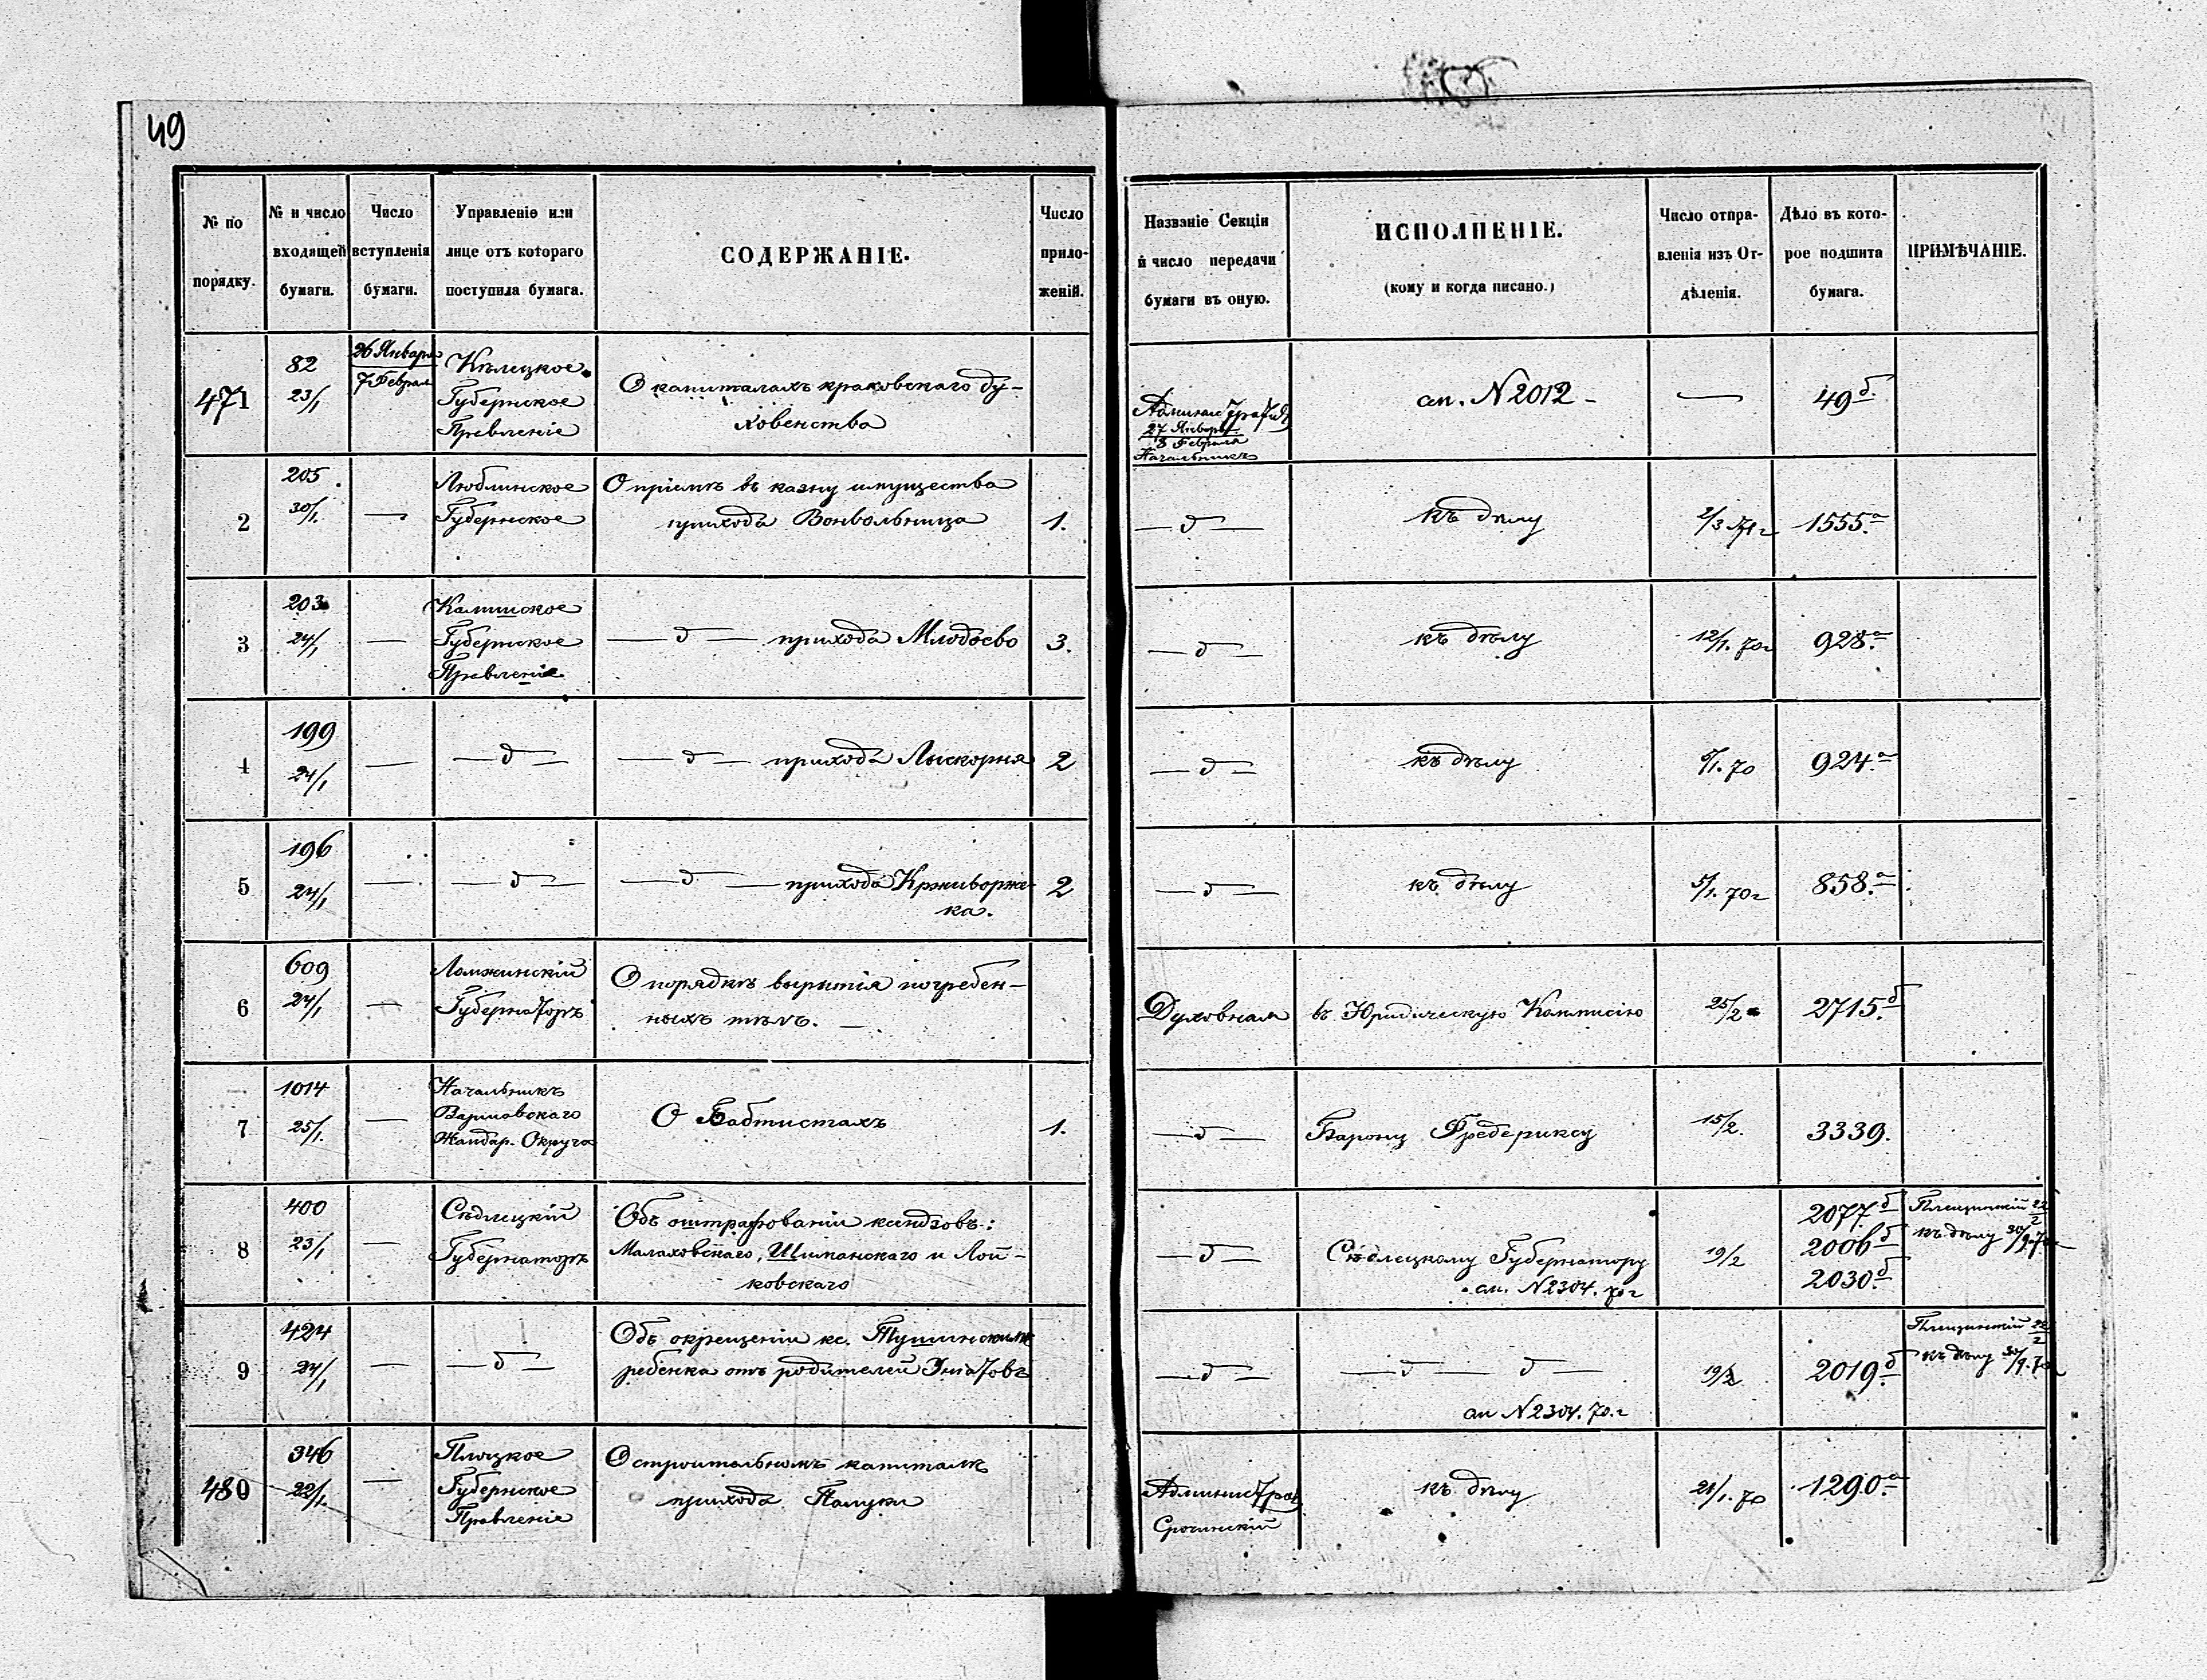 49
№ по порядку.
№ и число входящей бумаги.
Число вступленія бумаги.
Управленіе или лице отъ котораго поступила бумага.
СОДЕРЖАНІЕ.
Число приложеній.
Названіе Секціи и число передачи бумаги въ оную.
ИСПОЛНЕНІЕ.
(кому и когда писано.)
Число отправленія изъ Отдѣленія.
Дѣло въ которое подшита бумага.
ПРИМѢЧАНІЕ.
471
82
23/1
26 Января
7 Феврал
Кѣлецкое
Губернское
Правленіе
О капиталахъ краковскаго ду-
ховенства
Административ
27 Января
8 Февраля
Начальникъ
сп. N 2012 -
—
49 б.
2
205.
30/1.
—
Люблинское
Губернское
О пріемѣ въ казну имущества
прихода Вонвольница
1.
— д —
къ дѣлу
2/3 71 г
1555. а
3
203
24/1
—
Калишское
Губернское
Правленіе
— д — прихода Млодоево
3.
— д —
къ дѣлу
12/1. 70 г
928. а
4
199
24/1
—
— д —
— д — прихода Лыскорня
2
— д —
къ дѣлу
5/1. 70
924. а
5
196
24/1
—
— д —
— д — прихода Крживорже-
ка.
2
— д —
къ дѣлу
5/1. 70 г
858. а
6
609
24/1
—
Ломжинскій
Губернаторъ
О порядкѣ вырытія погребен-
ныхъ тѣлъ. —
Духовная
въ Юридическую Коммисію
25/2
2715. б
7
1014
25/1.
—
Начальникъ
Варшавскаго
Жандар. Округа
О Бабтистахъ
1.
— д —
Барону Фредериксу
15/2.
3339.
8
400
23/1
—
Сѣдлецкій
Губернаторъ
Объ оштрафованіи ксендзовъ:
Малаховскаго, Шиманскаго и Лой-
ковскаго
— д —
Сѣдлецкому Губернатору
сп. N 2304. 70 г
19/2
2077. б
2006 б
2030. б
22/2
къ дѣлу 30/9. 70
9
424
24/1
—
— д —
Объ окрещеніи кс. Тушинскимъ
ребенка отъ родителей Уніатовъ
— д —
— д — д —
сп N 2304. 70. г
19/2
2019. б
22/2
къ дѣлу 30/9. 70
480
346
22/1
—
Плоцкое
Губернское
Правленіе
О строительномъ капиталѣ
прихода Палуки
Администрат
Срочинскій
къ дѣлу
21/1. 70
1290. а